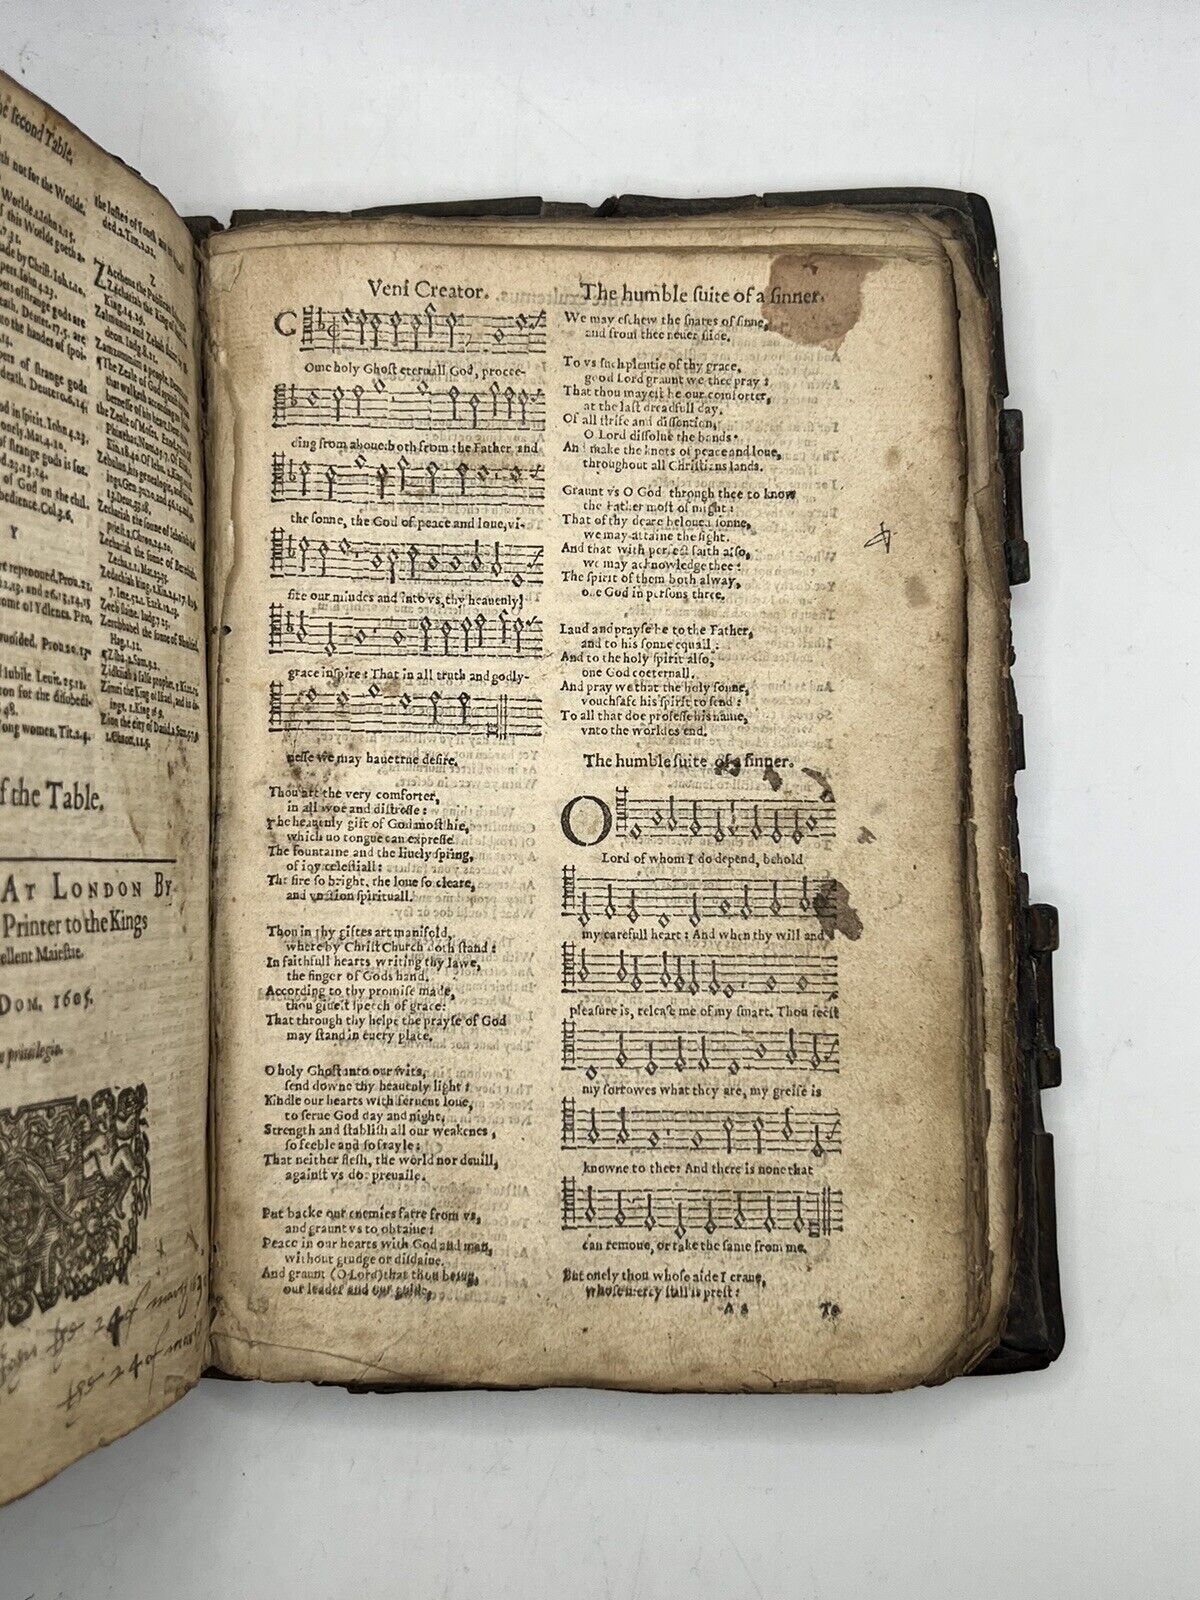 he second Table.
th not for the Worlde.
Worlde.1.John 2.15.
f this Worlde goeth a-
7.31.
nade by Christ. Joh.1.10.
pers. John 4.23.
pers of strange gods are
eath, Deuter. 17.5. are
nto the handes of spoi-
14.
pers of strange gods
death, Deutero.6.14.
od in spirit. John 4.23.
onely. Mat.4.10.
of strange gods is for.
od.23.13.24.
of God on the chil.
bedience. Col.3.6.
Y
re reprooued, Prou.21.
2.13. and 26.13,14,15
ome of Ydlenes. Pro,
uoided. Prou.20.13.
d Iubile Leuit.25.12.
ion for the disobedi-
48.
ong women, Tit.2.4.
the lustes of Youth are to be auoi
ded. 2.Tim.2.22.
Z
ZAccheus the Publican
Zachariah the king of Israel,
2.King.14.29.
Zalmunna and Zebah slaine by G
deon. Iudg.8.21.
the Zeale of God
Zebulun, his genealogie, and
Zechariah the sonne of Iehoiada
Zechariah the sonne of Barachiah,
Zech.1.1. Mat.23.35.
Zedechiah king, 2.Kin.24.17.
Ier.52.1. Ezek.12.13.
Zeeb slaine. Iudg.7.25.
Zerubbabel the sonne of Shealtiel,
Hag.1.12.
Ziba, 2.Sam.9.2.
Zidkiiah a false prophet.
Zimri the King of Israel, and his do-
ings. 1.King.16.9.
Zion the city of Dauid.2.Sam.5.7,9
1.Chron.11.5.
of the Table.
AT LONDON BY
Printer to the Kings
cellent Maiestie.
DOM. 1605.
priuilegio.
the 24 of
the 24 of
Veni Creator.
COme holy Ghost eternall God, procee-
ding from aboue: both from the Father and
the sonne, the God of peace and loue, vi-
site our mindes and into vs, thy heauenly
grace inspire: That in all truth and godly-
nesse we may haue true desire.
Thou art the very comforter,
in all woe and distresse:
The heauenly gift of God most hie,
which no tongue can expresse
The fountaine and the liuely spring,
of ioy celestiall:
The fire so bright, the loue so cleare,
and vnction spirituall.
Thou in thy giftes art manifold,
where by Christ Church doth stand:
In faithfull hearts writing thy lawe,
the finger of Gods hand.
According to thy promise made,
thou giuest speech of grace:
That through thy helpe the prayse of God
may stand in euery place.
O holy Ghost into our wits,
send downe thy heauenly light:
Kindle our hearts with feruent loue,
to serue God day and night,
Strength and stablish all our weakenes,
so feeble and so frayle:
That neither flesh, the world nor deuill,
against vs do preuaile.
Put backe our enemies farre from vs,
and graunt vs to obtaine:
Peace in our hearts with God and man,
without grudge or disdaine.
And graunt (O Lord) that thou being,
our leader and our guide,
The humble suite of a sinner.
We may eschew the snares of sinne,
and from thee neuer slide.
To vs such plentie of thy grace,
good Lord graunt we thee pray:
That thou mayest be our comforter,
at the last dreadfull day.
Of all strife and dissention,
O Lord dissolue the bands.
And make the knots of peace and loue,
throughout all Christians lands.
Graunt vs O God through thee to know
the Father most of might:
That of thy deare beloued sonne,
we may attaine the sight.
And that with perfect faith also,
we may acknowledge thee:
The spirit of them both alway,
one God in persons three.
Laud and prayse be to the Father,
and to his sonne equall:
And to the holy spirit also,
one God coeternall.
And pray we that the holy sonne,
vouchsafe his spirit to send:
To all that doe professe his name,
vnto the worldes end.
The humble suite of a sinner.
O Lord of whom I do depend, behold
my carefull heart: And when thy will and
pleasure is, release me of my smart. Thou seest
my sorrowes what they are, my greife is
knowne to thee: And there is none that
can remoue, or take the same from me.
But onely thou whose aide I craue,
whose mercy still is prest:
A 2 To